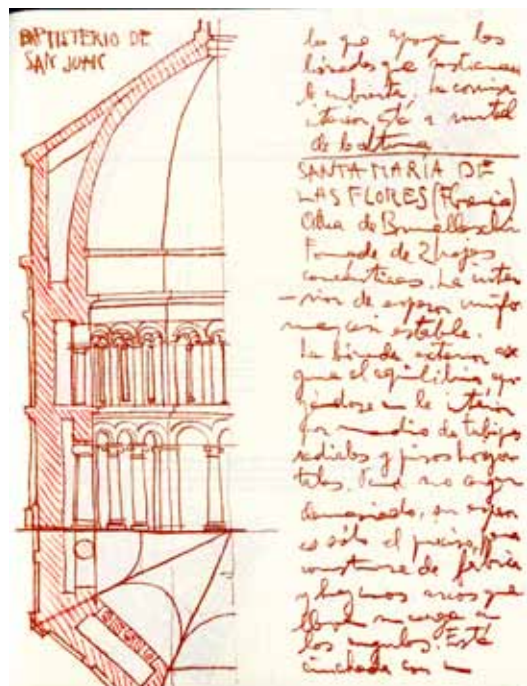 BAPTISTERIO DE
SAN JUAN
los que apoyan los
que sostienen
la cubierta. La cornisa
interior está a mitad
de la altura.
SANTA MARÍA DE
LAS FLORES (Florencia)
Obra de Brunelleschi
Formada de 2 hojas
La inter-
ior de espesor unifor-
me, casi estable.
La exterior
el equilibrio, apo-
yándose en la interior
por medio de tabiques
radiales y pisos horizon-
tales. Para no cargar
demasiado, su espesor
es sólo el preciso, para
construirse de fábrica
y hay unos arcos que
llevan su carga a
los ángulos. Está
cinchada con